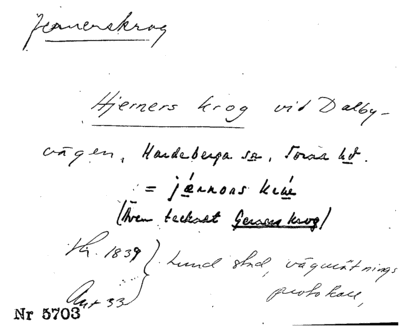 Jeanerskrog
Hjerners krog vid Dalby-
vägen, Hardeberga sn, Torna hd.
= jǽrnoas krú
(Även tecknat Gerners krog)
Hs. 1839
Lund stad, vägmätnings
Akt 33
protokoll,
Nr 5703